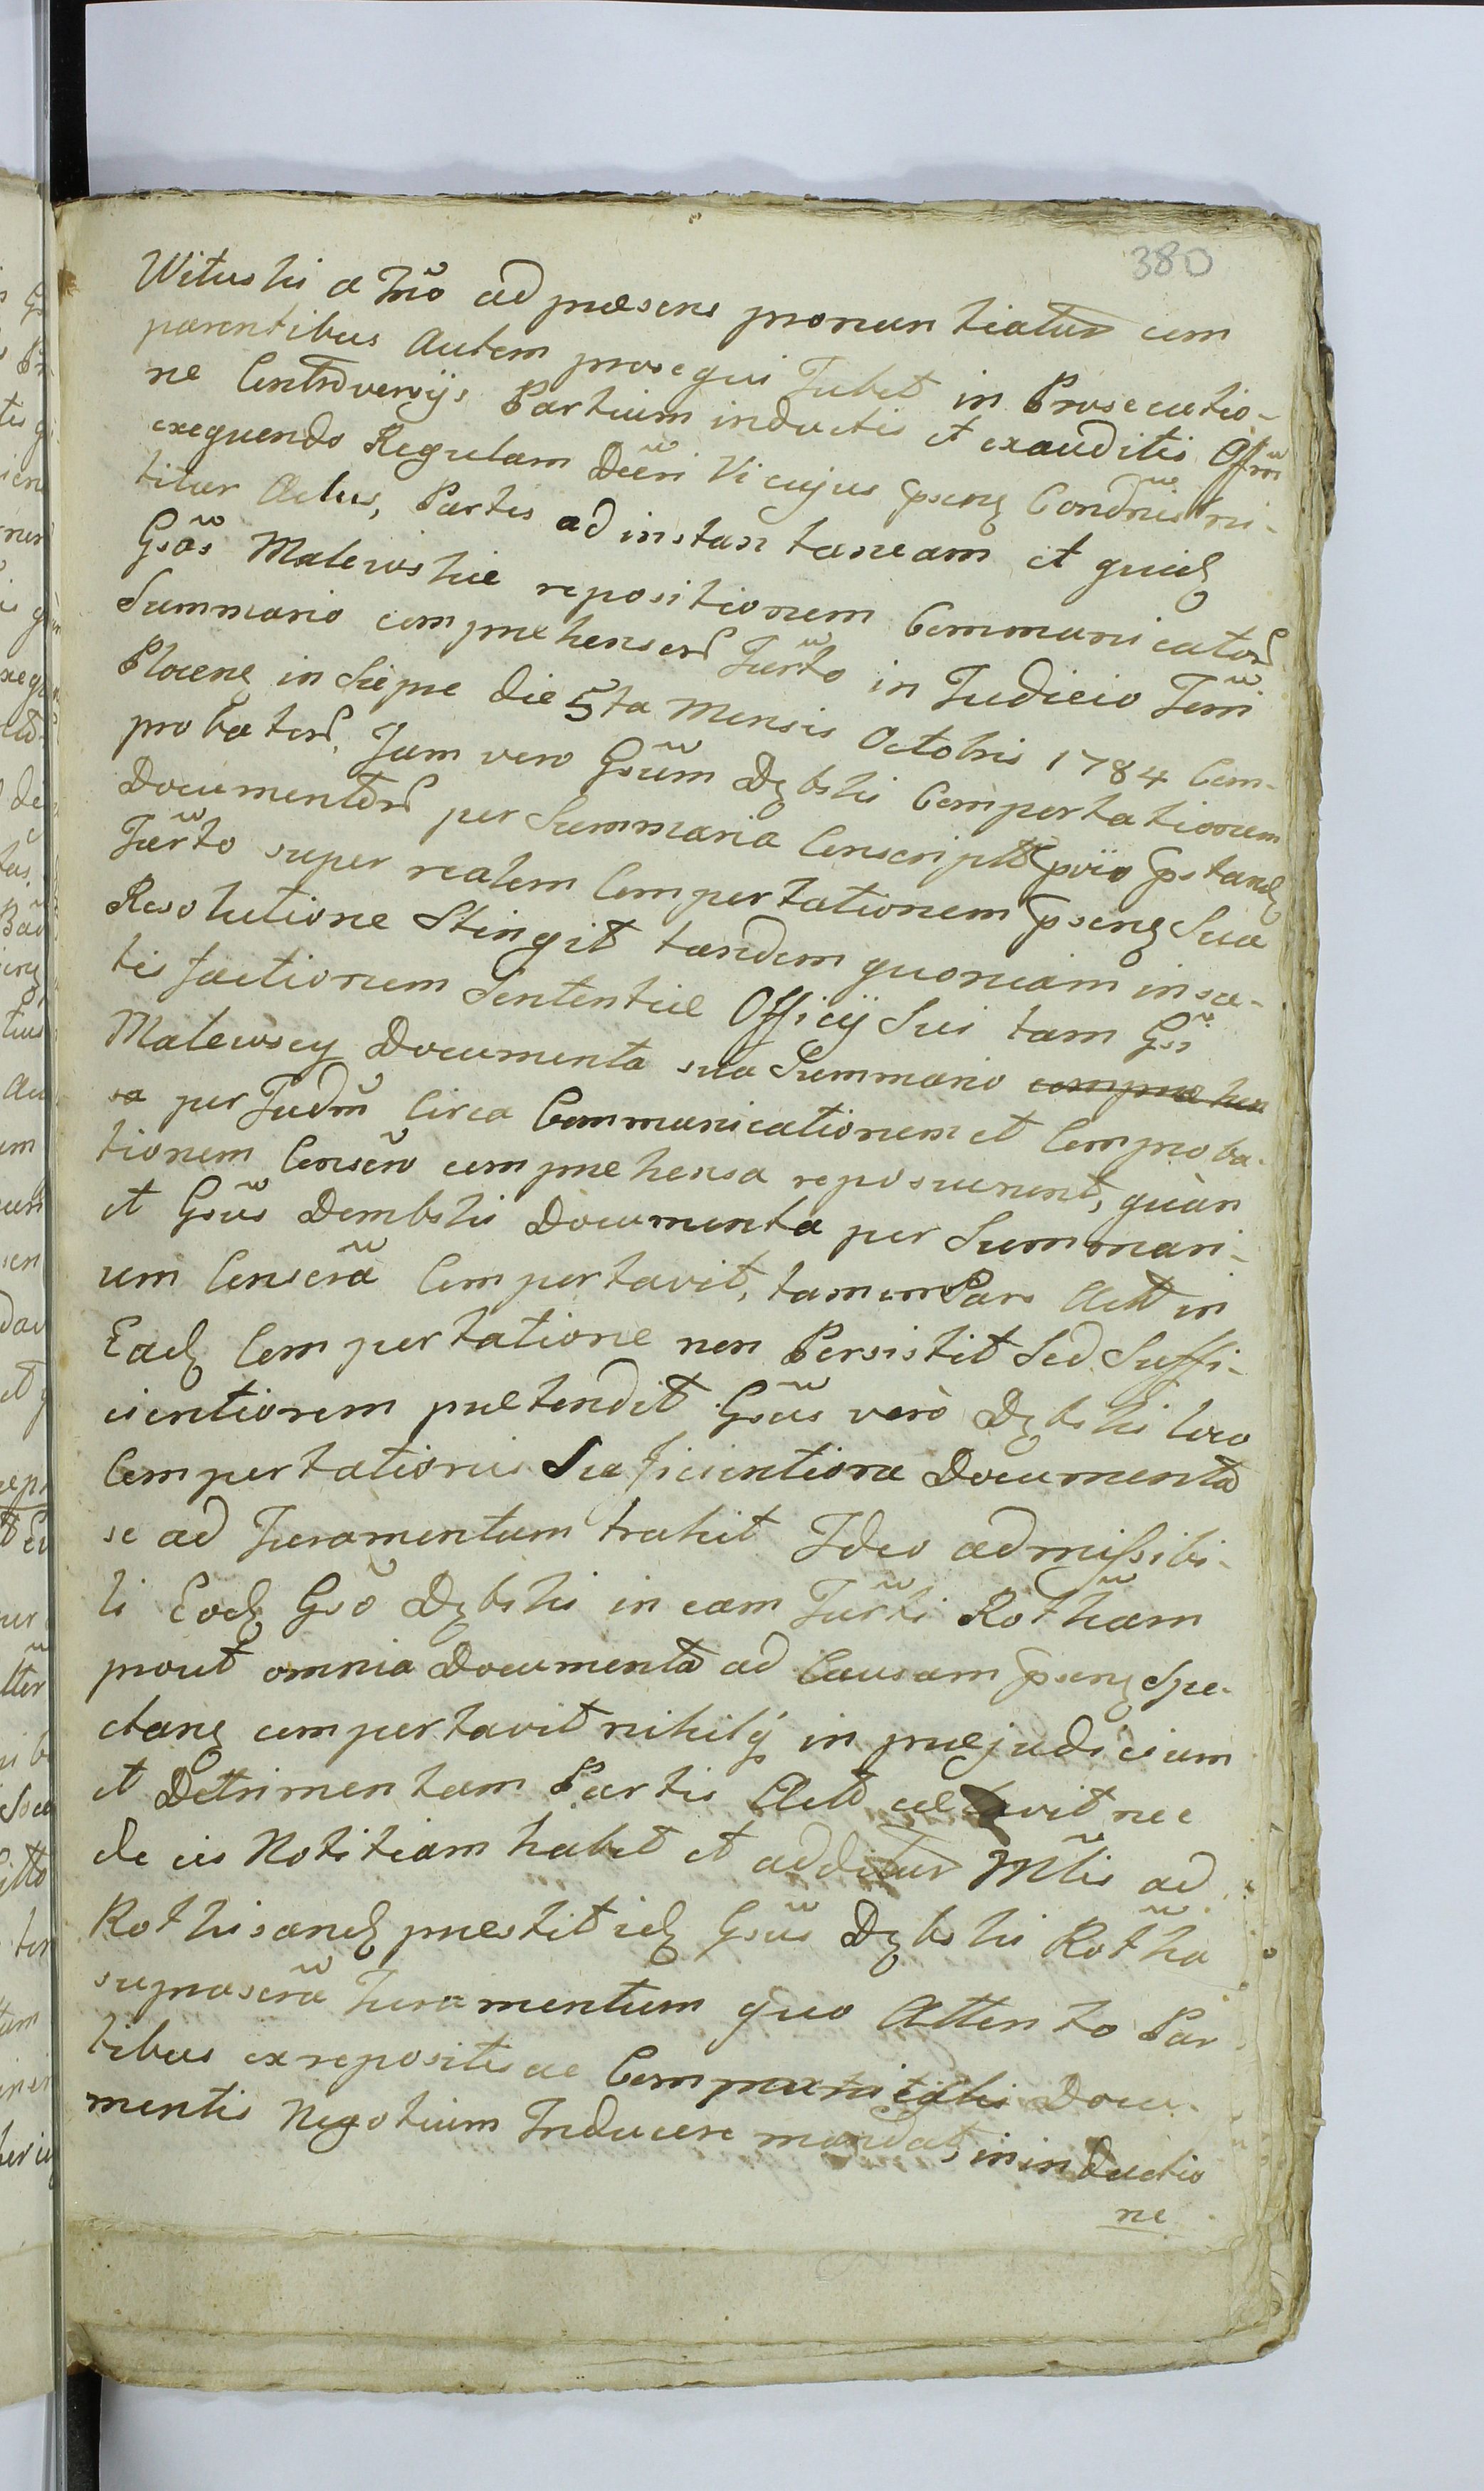 380
Wituski a Trio ad præsens pronuntiatur com
parentibus Autem prosequi Jubet in Prosecutio-
ne Controversijs Partium inductis et exauditis Offm
exequendo Regulam Decri Vi cujus psens Condnis ni-
titur Actus, Partes ad instantaneam et quid
Gsas Malewskie repositionem Communicator
Summario comprehensor Jurto in Judicio Terri
Plocens in Sieprc die 5ta Mensis Octobris 1784 Com-
probator, Jam vero Gsum Dębski Comportationem
Documentor per Summaria Conscript pvio pstand
Jurto super realem Comportationem psens Sua
Resolutione Stingit tandem quoniam in sa-
tisfactionem Sententiæ Officij Sui tam Gsi
Malewscy Documenta sua Summario compræhen
sa per Judm Circa Communicationem et Comproba-
tionem Consero compræhensa reposuerunt, quàn
et Gsus Dembski Documenta per Summari-
um Conserä Comportavit, tamen Pars Actt in
Ead Comportatione non Persistit Sed Suffi-
cientiorem prætendit Gsus verò Dębski loco
Comportationis Suficientiora Documenta
se ad Juramentum trahit Ideo admissibi-
li Eod Gso Dębski in eam Jurti Rotham
prout omnia Documenta ad Causam psens Spe-
ctans comportavit nihilq in præjudicium
et Detrimentam Partis Actt celavit nec
de eis Notitiam habet et additur Mtis ad
Rothisand præstit id Gsus Dębski Rotha
suprascra Juramentum quo Attento Par
tibus ex repositis ac Comportatis Docu-
mentis Negotium Inducere mandat, in inductio
ne